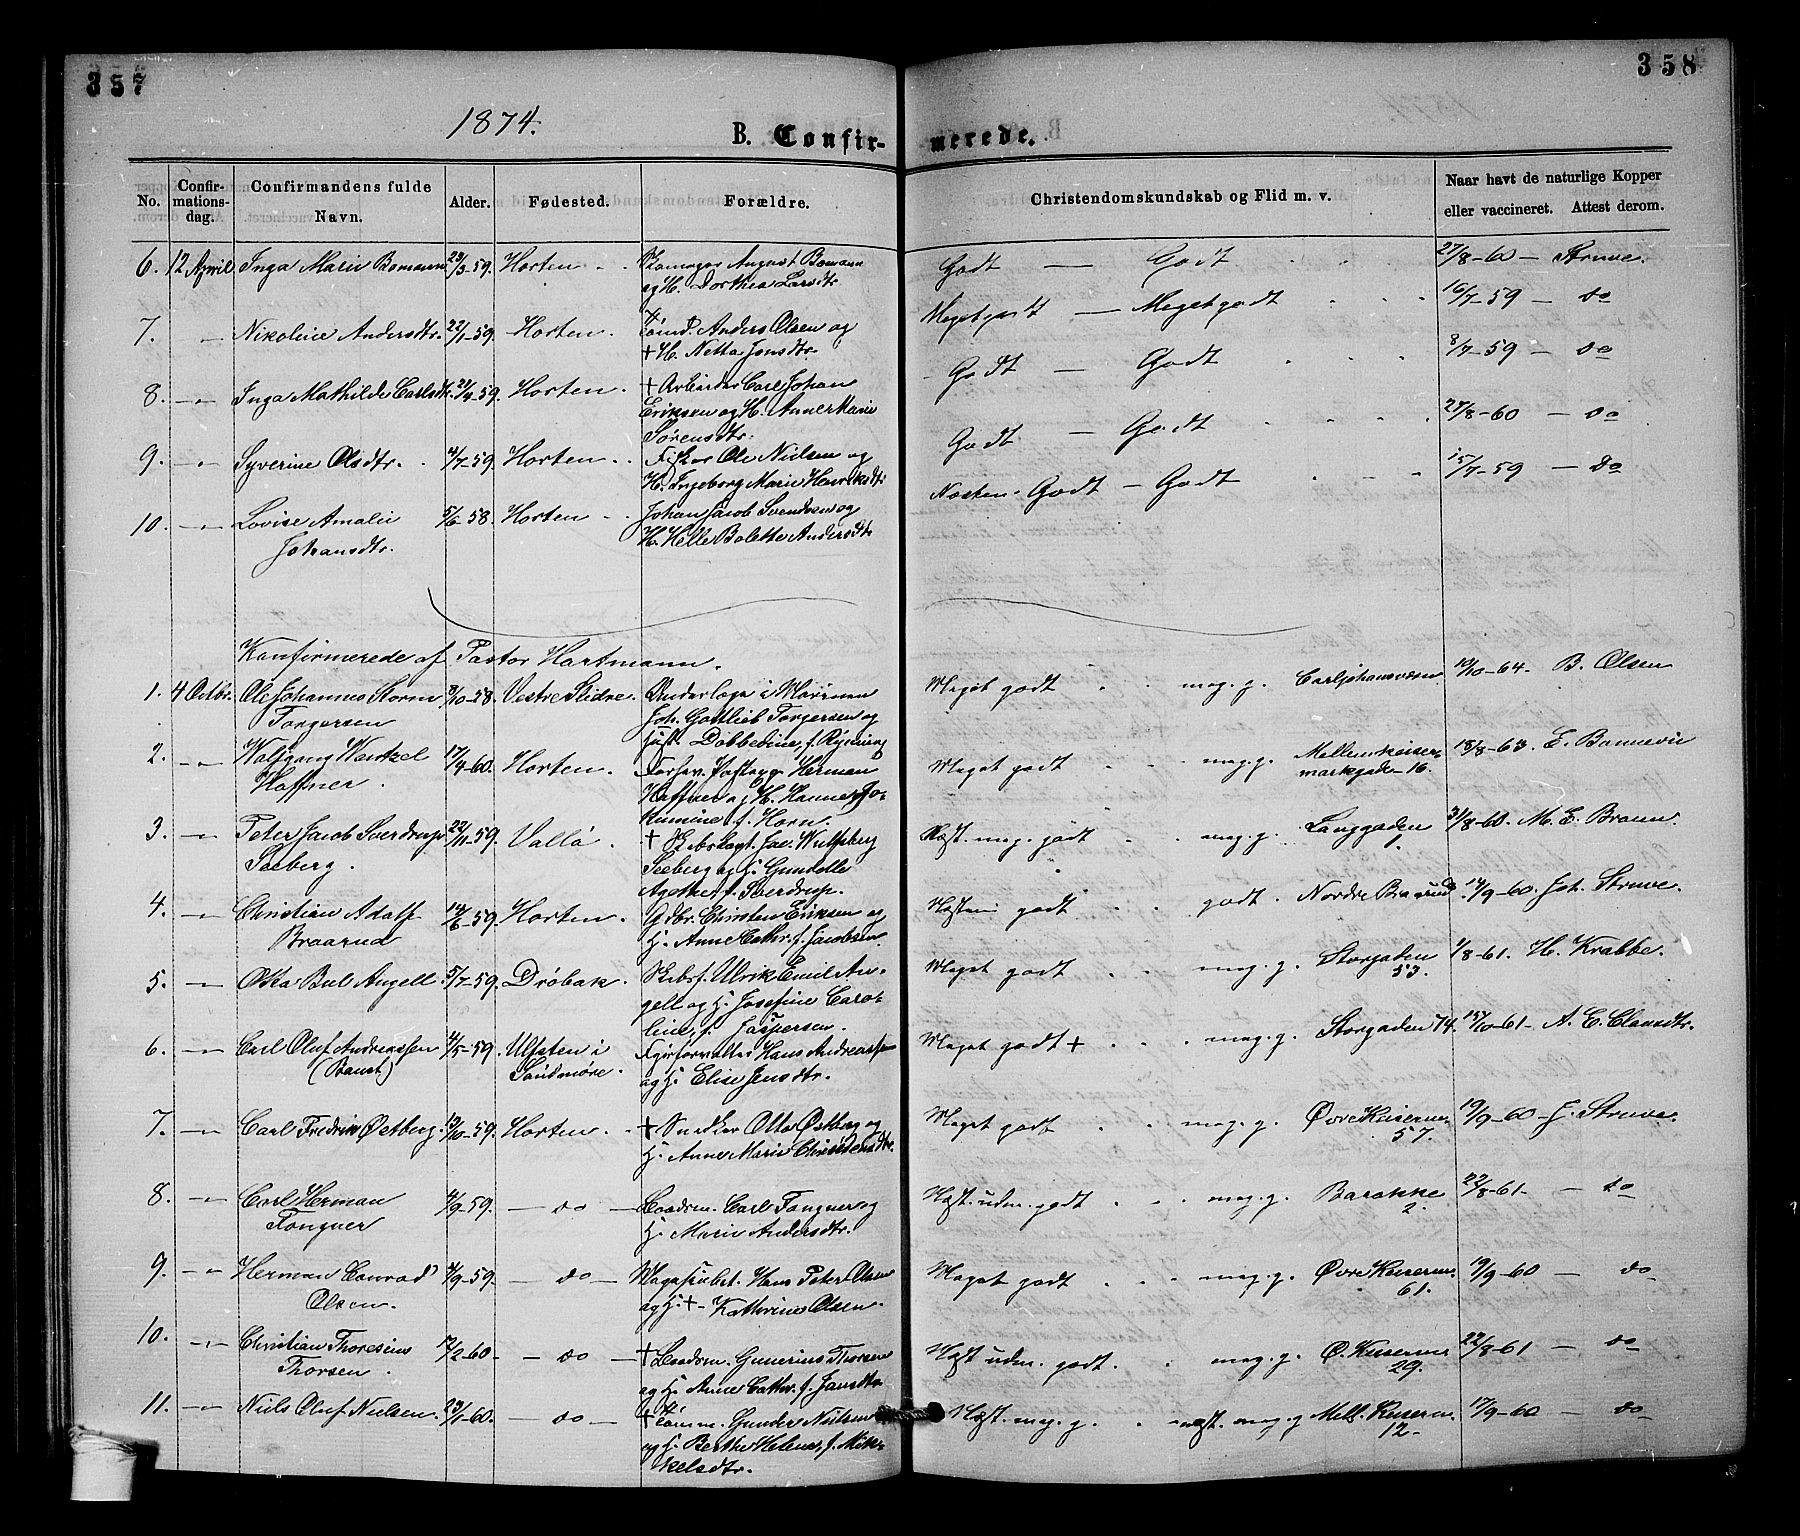 357
358
1874.
B. Confirmerede.
No. Confirmationsdag. Confirmandens fulde Navn. Alder. Fødested. Forældre. Christendomskundskab og Flid m. v. Naar havt de naturlige Kopper eller vaccineret. Attest derom.
6. 12 April Inga Marie Bomann 23/3-59. Horten Skomager August Bomann
og H. Dorthea Larsdtr Godt — Godt 27/8-60 — Struve.
7. -"- Nikoline Andersdtr. 22/1-59. Horten. Tømd. Anders Olsen og
+ H. Netta Jensdtr. Meget godt — Meget godt 16/7-59 — do
8. -"- Inga Mathilde Carlsdtr. 21/4-59. Horten. + Arbeider Carl Johan
Eriksen og H. Anne Marie
Sørensdtr. Godt — Godt 8/7-59 — do
9. -"- Syverine Olsdtr. 4/7-59. Horten. Fisker Ole Nielsen og
H. Ingeborg Marie Henriksdtr Godt — Godt 27/8-60 — do
10. -"- Lovise Amalie
Johansdtr. 5/6-58. Horten Johan Jacob Svendsen og
H. Helle Bolette Andersdtr Næsten Godt — Godt 15/7-59 — Do
Konfirmerede af Pastor Hartmann.
1. 4 Octbr. Ole Johannes Storm
Torgersen 3/10-58. Vestre Slidre. Underlæge i Marinen
Joh. Gottlieb Torgersen og
Dobbedine, f. Ryning Meget godt meg. g. Carljohansværn 10/10-64. B. Olsen
2. -"- Wolfgang Wentzel
Haffner. 17/4-60. Horten. Herman
Haffner og H. Hanne Jo-
kumine f. Horn. Meget godt meg. g. Mellemkeiser-
markgaden 16. 18/8-63. E. Bonnevie
3. -"- Peter Jacob Sverdrup
Seeberg. 22/11-59. Vallø. + Skibskapt. Jac. Wulfsberg
Seeberg og H. Gunelle
Agathe, f. Sverdrup. Næst. meg. godt meg. g. Langgaden 31/8-60. M. E. Braun.
4. -"- Christian Adolf
Braarud 14/6-59. Horten. Gdbr. Christen Eriksen og
H. Anne Cathr. f. Jacobsen Næsten godt godt. Nordre Braarud. 14/9-60. Joh. Struve.
5. -"- Oska Bul Angell 5/7-59. Drøbak. Skibsf. Ulrik Emil An-
gell og H. Josefine Caro-
line, f. Jaspersen. Meget godt meg. g. Storgaden
53. 1/8-61. H. Krabbe.
6. -"- Carl Oluf Andreassen
(Banst) 4/5-59. Ulfsten i
Søndmøre. Fyrforvalter Hans Andreassen
og H. Elise Jensdtr. Meget godt + meg. g. Storgaden 74. 15/10-61 - A. E. Clausdtr.
7. -"- Carl Fredrik Østberg. 13/10-59. Horten + Snedker Otto Østberg og
H. Anne Marie Christensdtr. Meget godt meg. g. Øvre Keiserm.
57. 19/9-60 - J. Struve.
8. -"- Carl Herman
Fongner 4/9-59. — do — Baadsm. Carl Fongner og
H. Marie Andersdtr. Næst. udm. godt meg. g. Barakke
2. 22/8-61. — do
9. -"- Herman Conrad
Olsen. 4/9-59. — do — Magasinbet. Hans Peter Olsen
og H. +- Kathrine Olsen. Meget godt meg. g. Øvre Keiserm.
61. 19/9-60 — do
10. -"- Christian Thoresius
Thorsen. 17/2-60. — do — + Baadsm. Gunerius Thorsen
og H. Anne Cathr. f. Jansdtr Næst udm. godt. meg. g. Ø. Keiserm.
29. 22/8-61 — do
11. -"- Niels Oluf Nielsen. 23/1-60. — do — + Tømm. Gunder Nielsen
og H. Berthe Helene, f. Mik-
kelsdtr. Næst. meg. g. næst. meg. g. Mell. Keiserm.
12. 17/9-60 — do